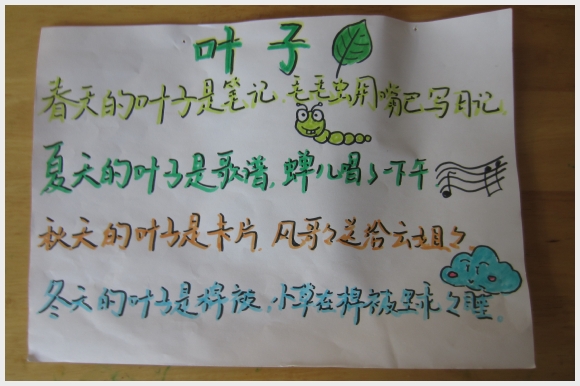 叶子
春天的叶子是笔记,毛毛虫用嘴巴写日记.
夏天的叶子是歌谱,蝉儿唱了一下午
秋天的叶子是卡片,风哥々送给云姐々.
冬天的叶子是棉被,小草在棉被里乖々睡。